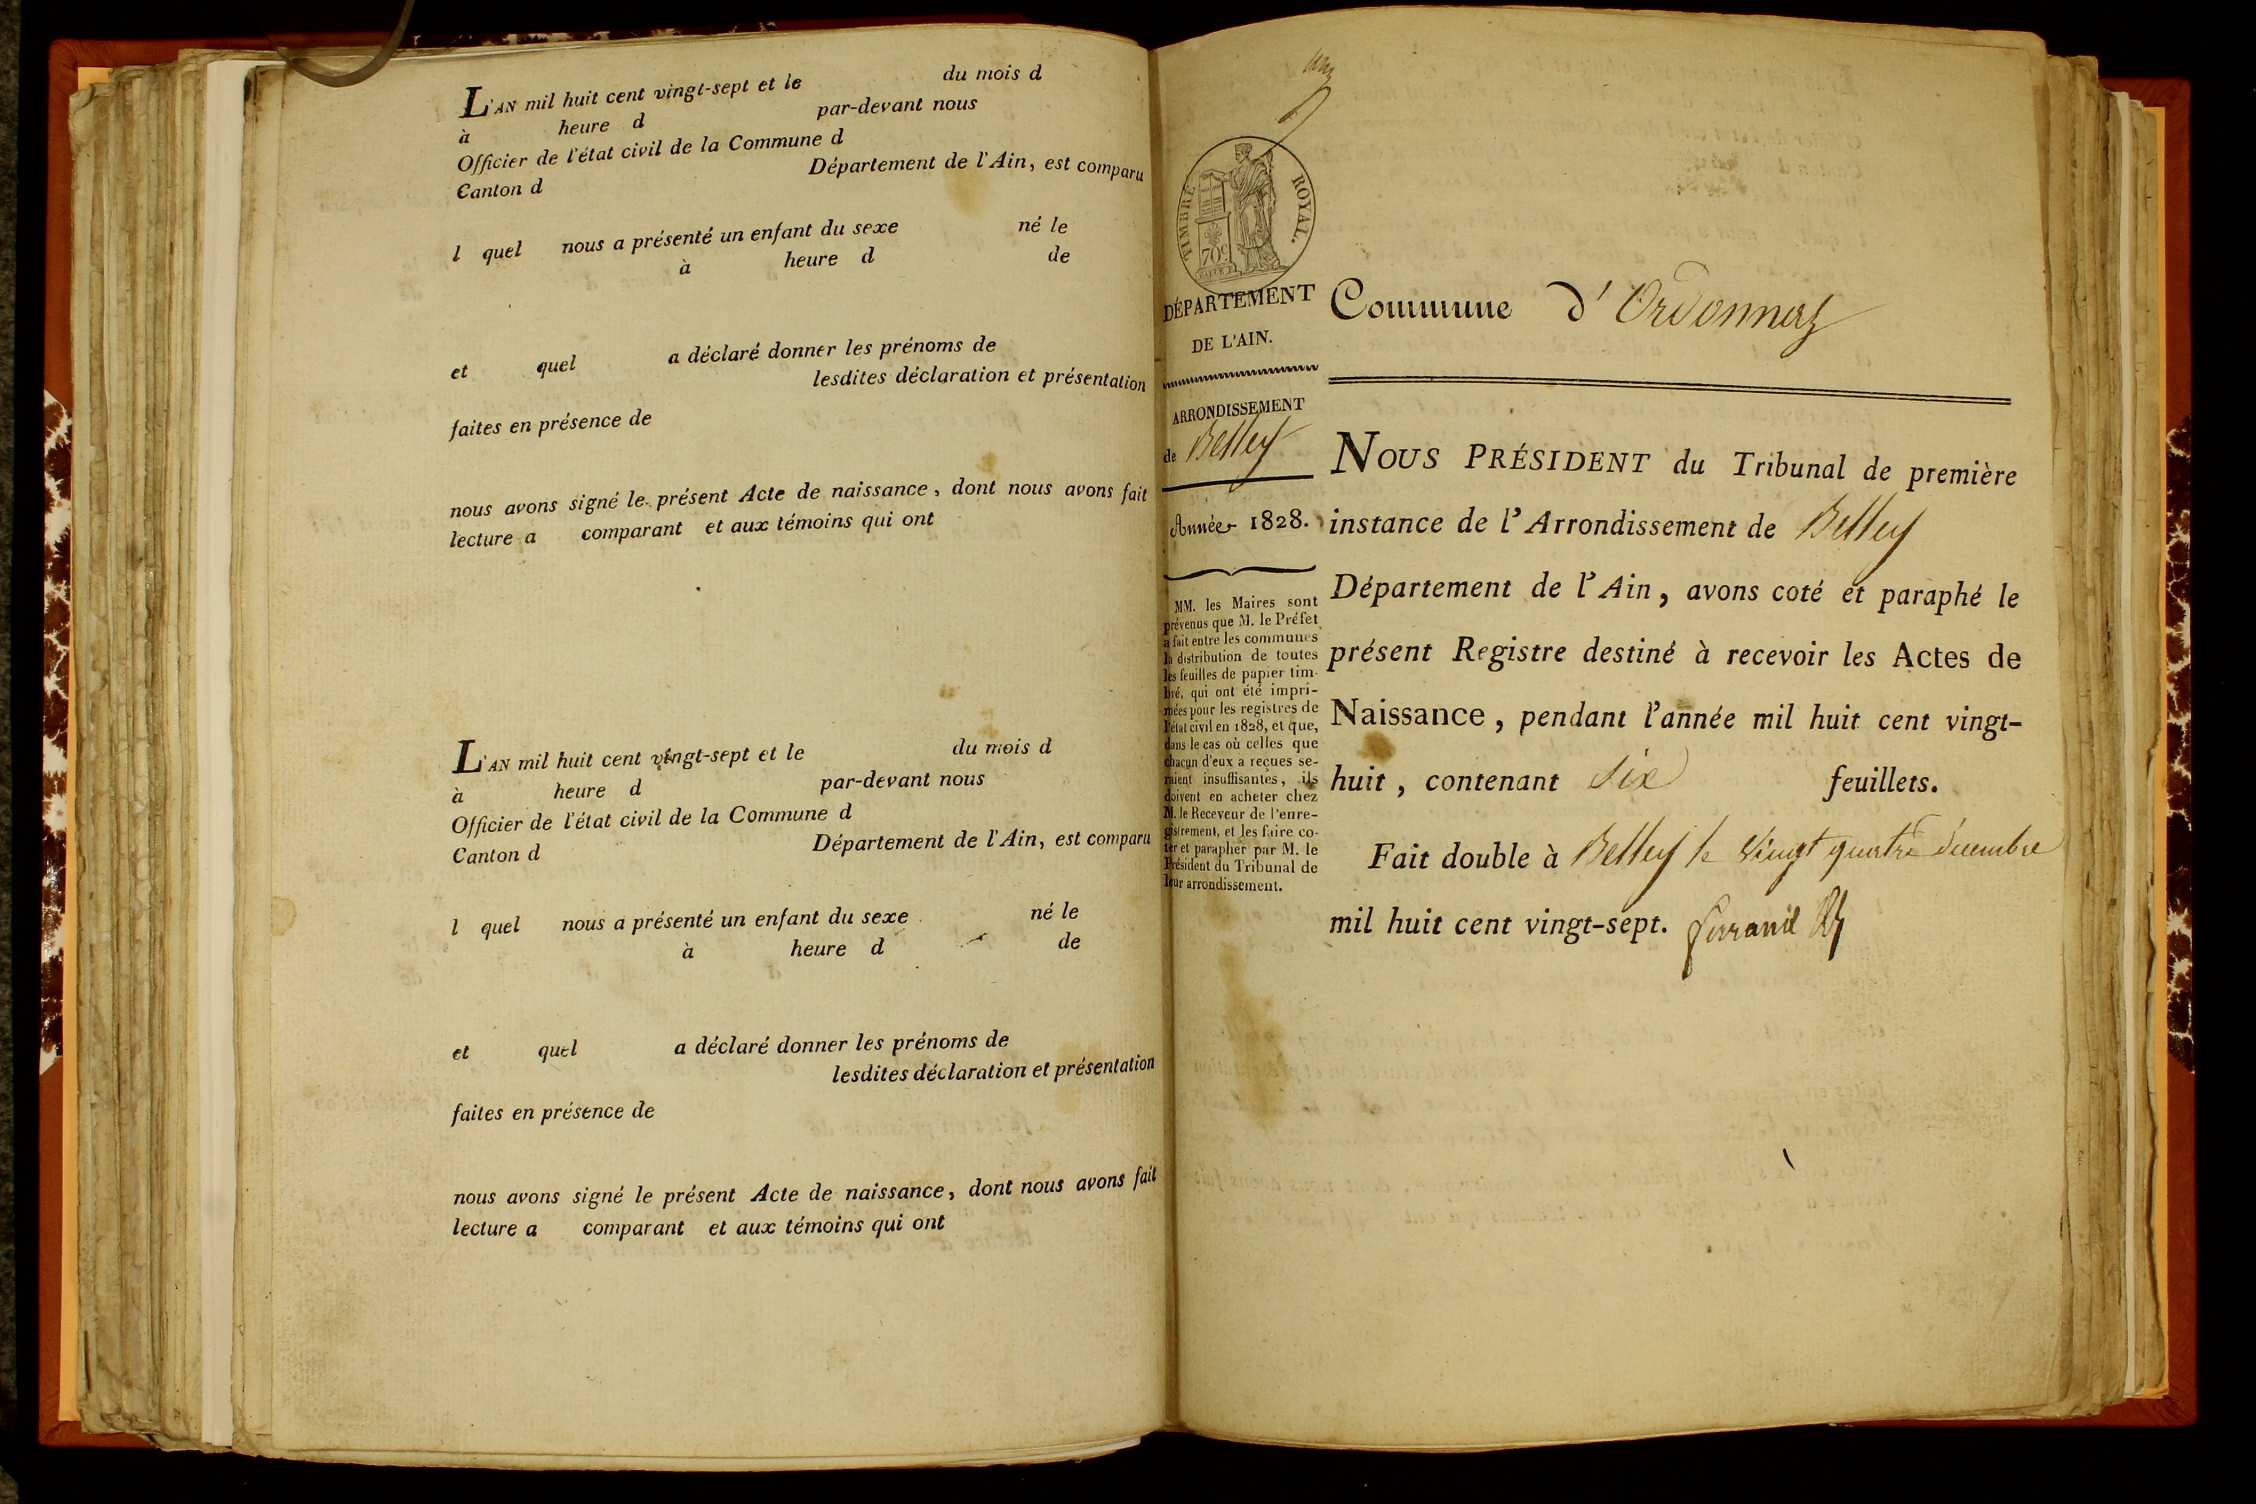 L'AN mil huit cent vingt-sept et le du mois d
à heure d par-devant nous
Officier de l'état civil de la Commune d
Canton d Département de l'Ain, est comparu
l quel nous a présenté un enfant du sexe né le
à heure d de
et quel a déclaré donner les prénoms de
lesdites déclaration et présentation
faites en présence de
nous avons signé le présent Acte de naissance, dont nous avons fait
lecture a comparant et aux témoins qui ont
L'AN mil huit cent vingt-sept et le du mois d
à heure d par-devant nous
Officier de l'état civil de la Commune d
Canton d Département de l'Ain, est comparu
l quel nous a présenté un enfant du sexe né le
à heure d de
et quel a déclaré donner les prénoms de
lesdites déclaration et présentation
faites en présence de
nous avons signé le présent Acte de naissance, dont nous avons fait
lecture a comparant et aux témoins qui ont
TIMBRE ROYAL.
70c
DÉPARTEMENT
DE L'AIN.
ARRONDISSEMENT
de Belley
Année 1828.
MM. les Maires sont
prévenus que M. le Préfet
a fait entre les communes
la distribution de toutes
les feuilles de papier tim-
bré, qui ont été impri-
mées pour les registres de
l'état civil en 1828, et que,
dans le cas où celles que
chacun d'eux a reçues se-
raient insuffisantes, ils
doivent en acheter chez
M. le Receveur de l'enre-
gistrement, et les faire co-
ter et parapher par M. le
Président du Tribunal de
leur arrondissement.
Commune d'Ordonnaz
NOUS PRÉSIDENT du Tribunal de première
instance de l'Arrondissement de Belley
Département de l'Ain, avons coté et paraphé le
présent Registre destiné à recevoir les Actes de
Naissance, pendant l'année mil huit cent vingt-
huit, contenant six feuillets.
Fait double à Belley le vingt quatre décembre
mil huit cent vingt-sept.